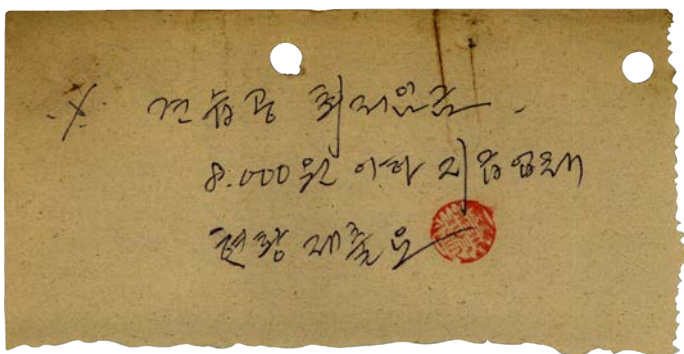 ※ 견습공 최저임금.
8.000원 이하 지급업체
현황 제출요